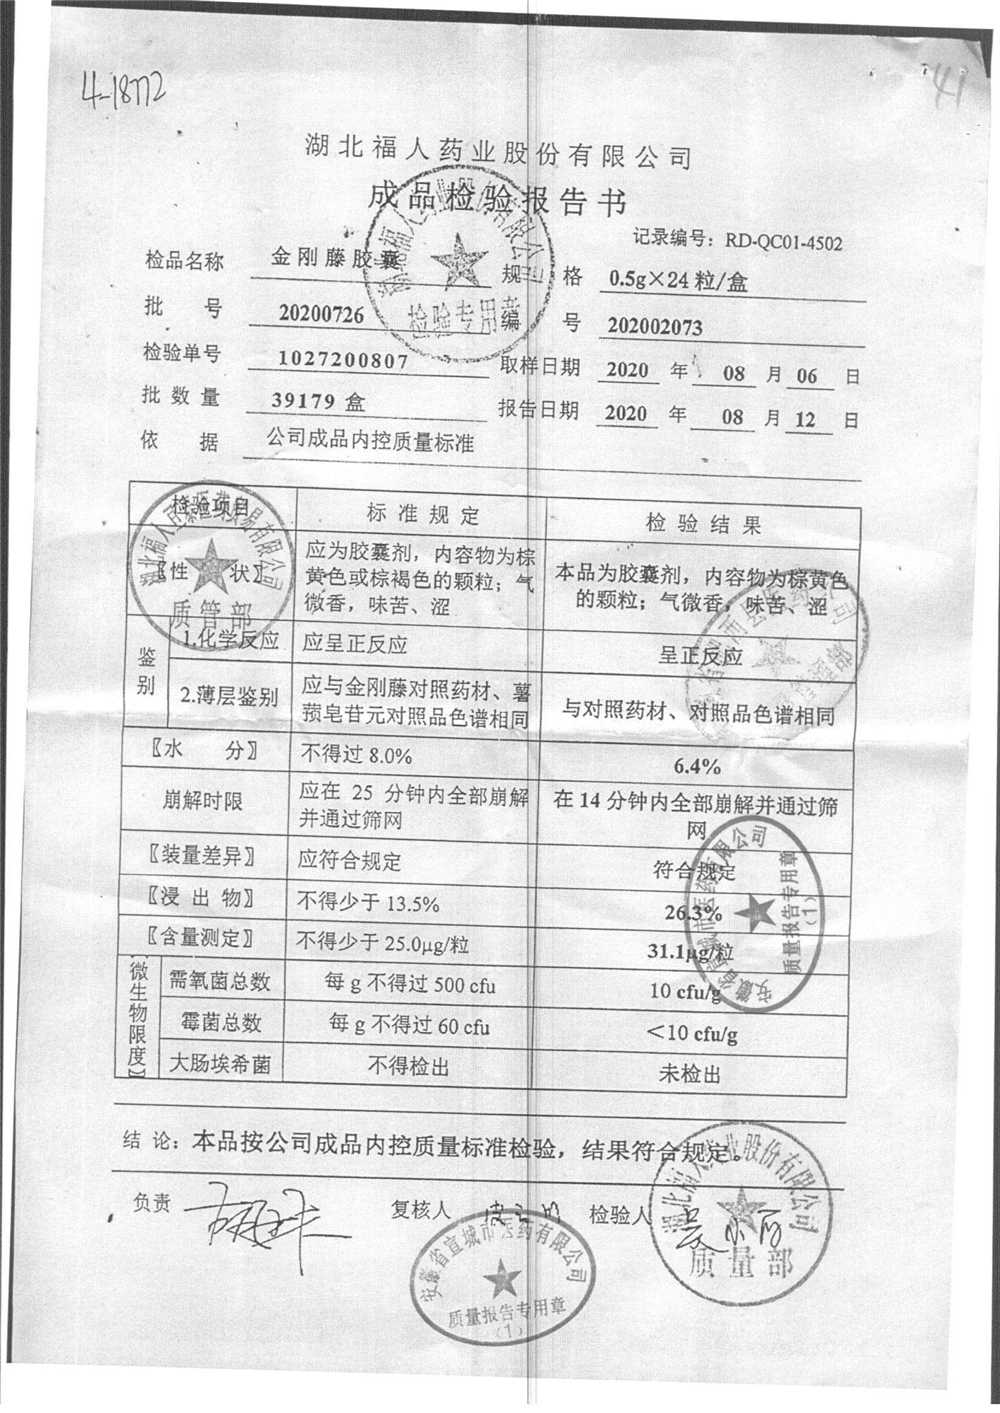 4-18772
41
湖北福人药业股份有限公司
成品检验报告书
记录编号：RD-QC01-4502
检品名称 金刚藤胶囊 规 格 0.5g×24粒/盒
批 号 20200726 编 号 202002073
检验单号 1027200807 取样日期 2020 年 08 月 06 日
批 数 量 39179 盒 报告日期 2020 年 08 月 12 日
依 据 公司成品内控质量标准
检验项目 标 准 规 定 检 验 结 果
【性 状】 应为胶囊剂，内容物为棕黄色或棕褐色的颗粒；气微香，味苦、涩 本品为胶囊剂，内容物为棕黄色的颗粒；气微香，味苦、涩
鉴别 1.化学反应 应呈正反应 呈正反应
2.薄层鉴别 应与金刚藤对照药材、薯蓣皂苷元对照品色谱相同 与对照药材、对照品色谱相同
〖水 分〗 不得过 8.0% 6.4%
崩解时限 应在 25 分钟内全部崩解并通过筛网 在 14 分钟内全部崩解并通过筛网
〖装量差异〗 应符合规定 符合规定
〖浸 出 物〗 不得少于 13.5% 26.3%
〖含量测定〗 不得少于 25.0μg/粒 31.1μg/粒
微生物限度】 需氧菌总数 每 g 不得过 500 cfu 10 cfu/g
霉菌总数 每 g 不得过 60 cfu ＜10 cfu/g
大肠埃希菌 不得检出 未检出
结 论：本品按公司成品内控质量标准检验，结果符合规定。
负责 复核人 检验人
湖北福人药业股份有限公司
检验专用章
质管部
安徽省宣城市医药有限公司
质量报告专用章
（1）
湖北福人药业股份有限公司
质量部
安徽省宣城市医药有限公司
质量报告专用章
（1）